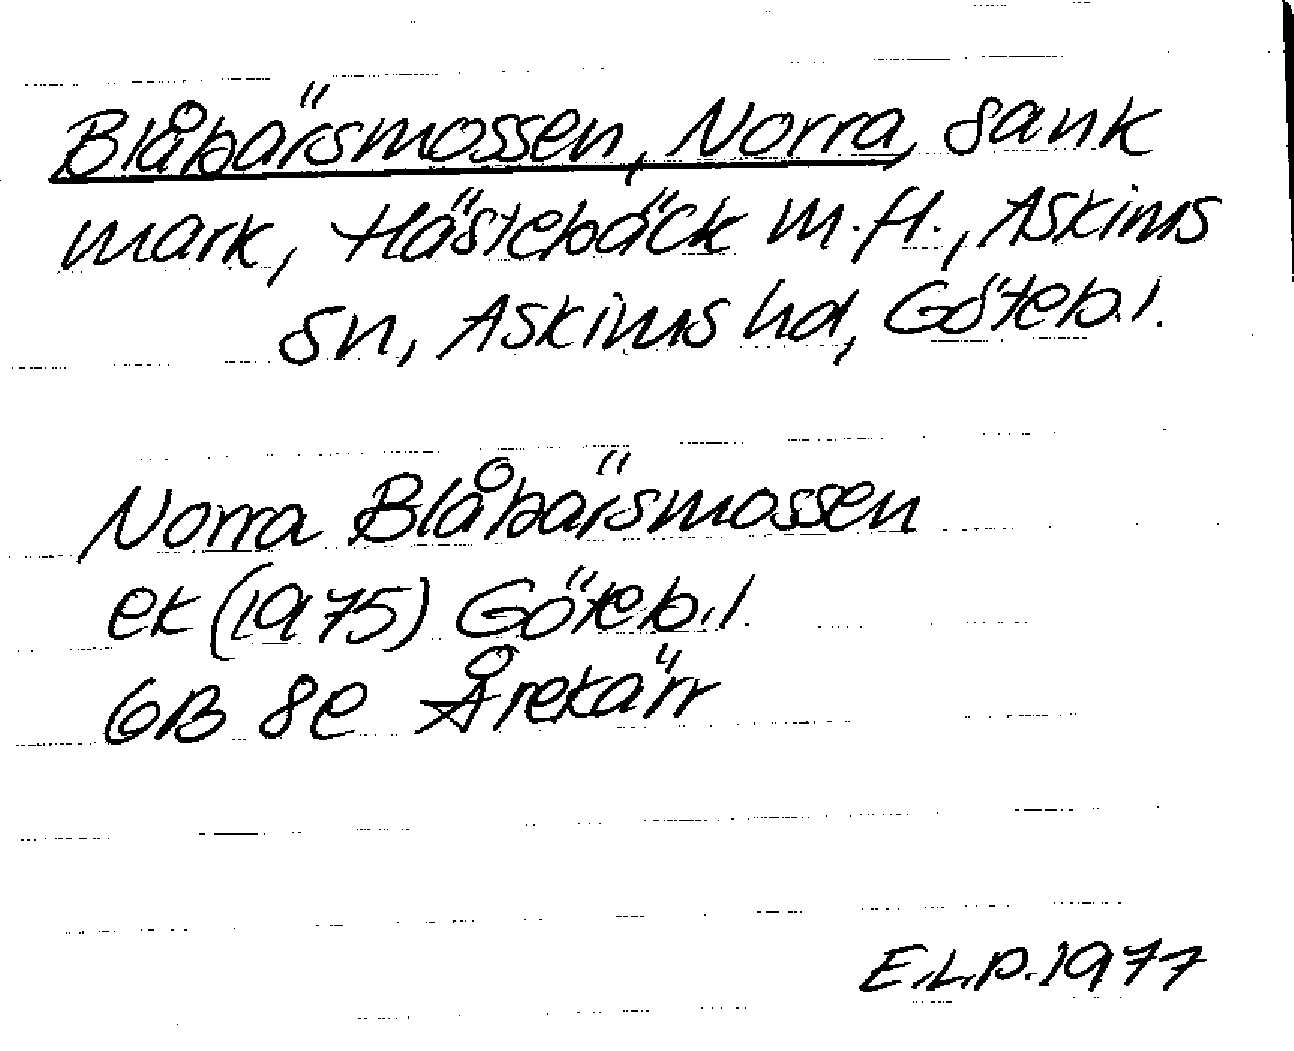 Blåbärsmossen, Norra, sank
mark, Hästebäck m.fl., Askims
sn, Askims hd, Göteb.l.
Norra Blåbärsmossen
ek (1975) Göteb.l.
6B 8e Årekärr
E.L.P. 1977